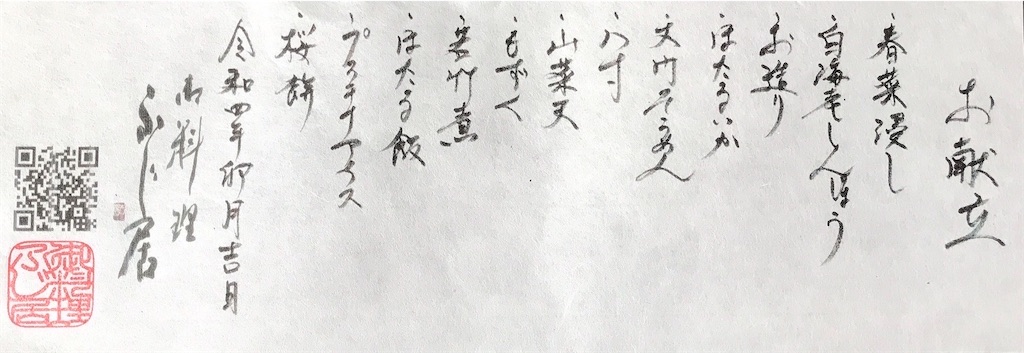 お献立
春菜浸し
白海老しんじょう
お造り
ほたるいか
文竹そうめん
八寸
山菜天
もずく
若竹煮
ほたる飯
プラチナアイス
桜餅
令和四年卯月吉日
御料理
ふじ居